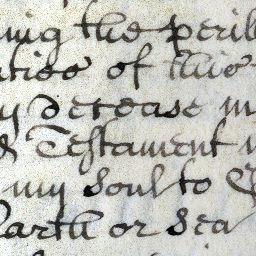 ing the peril
nties of this
y decease m
d Testament
my soul to G
Earth or sea